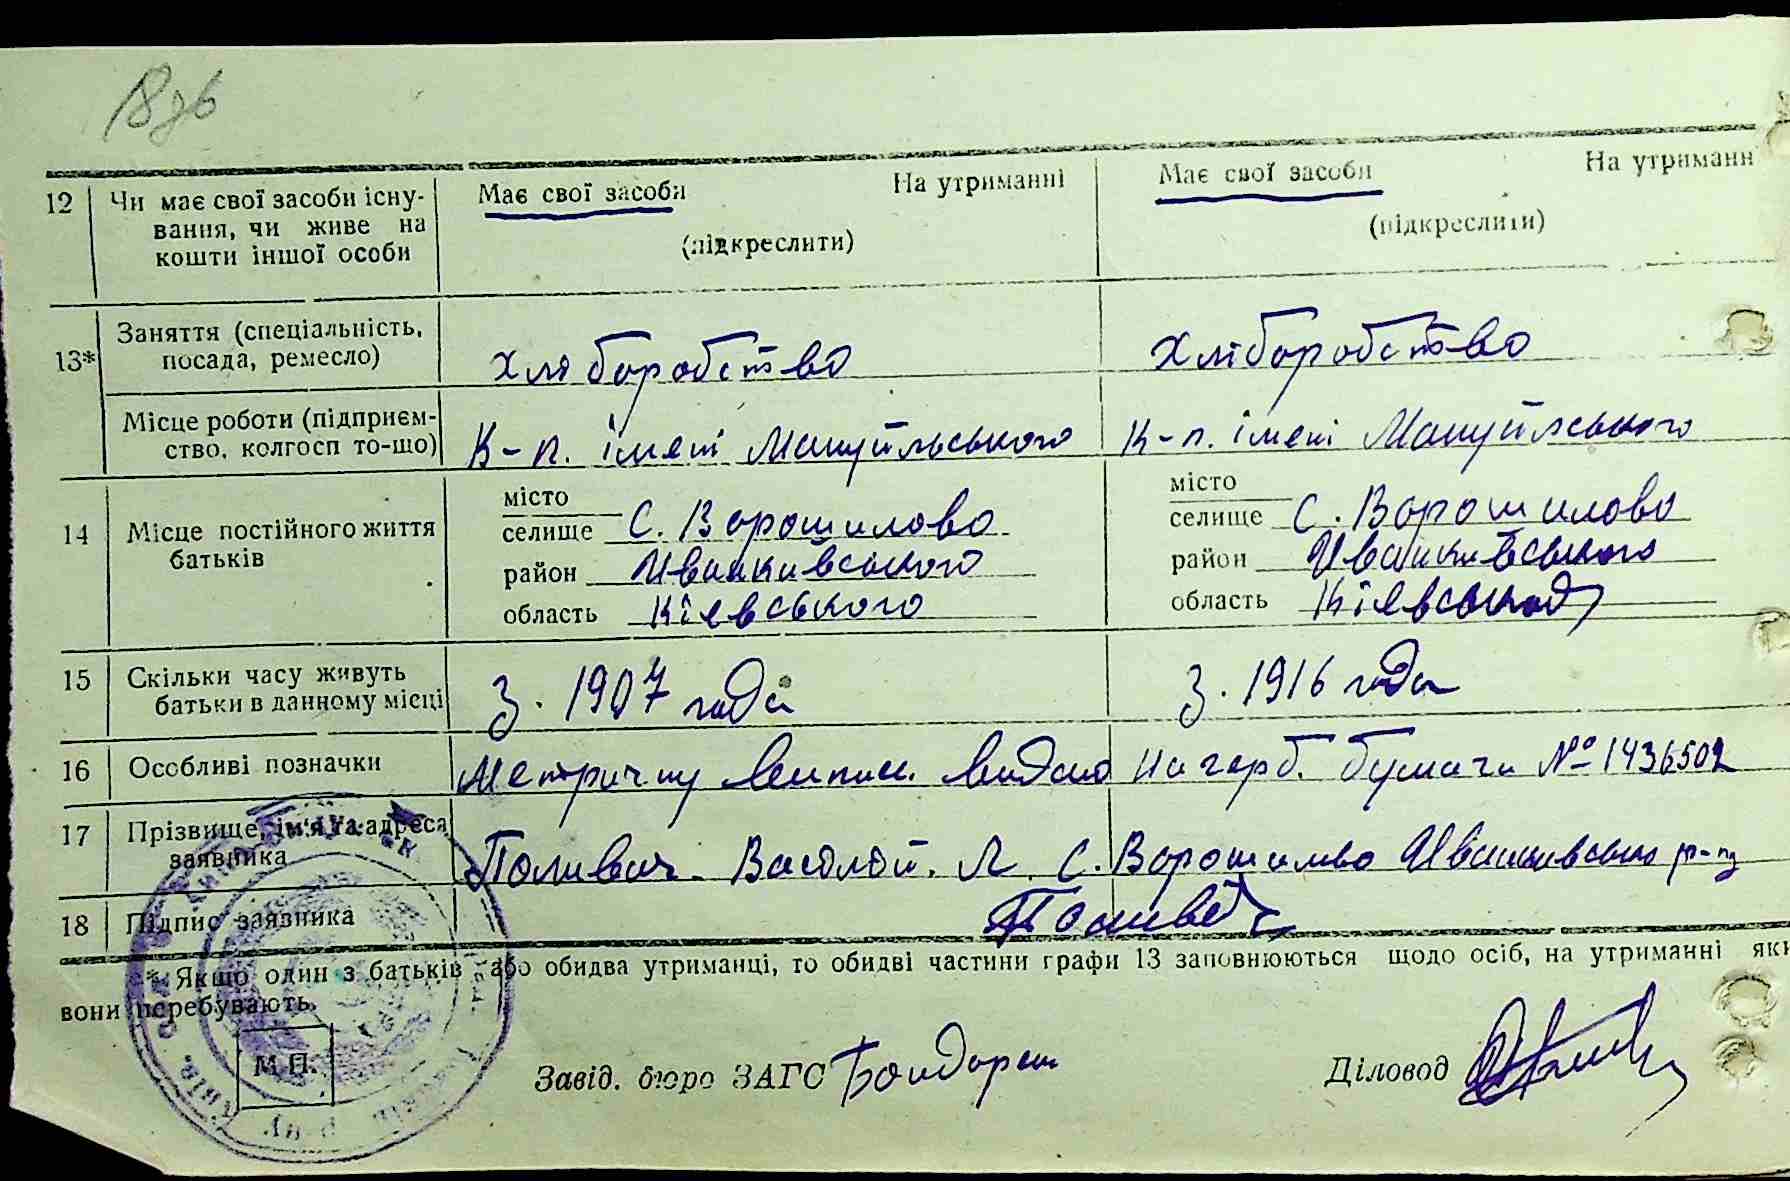 18зв
12 Чи має свої засоби існу- Має свої засоби На утриманні Має свої засоби На утриманн
вання, чи живе на (підкреслити) (підкреслити)
кошти іншої особи
13* Заняття (спеціальність, Хліборобство Хліборобство
посада, ремесло)
Місце роботи (підприєм- К-п. імені Мануїльського К-п. імені Мануїльського
ство, колгосп то-що)
14 Місце постійного життя місто місто
батьків селище С. Ворошилово селище С. Ворошилово
район Иванкивського район Иванкивського
область Кіевського область
15 Скільки часу живуть З. 1907 года З. 1916 года
батьки в данному місці
16 Особливі позначки Метричну видано На герб. бумаги № 1436502
17 Прізвище, ім'я та адреса
заявника Василий. Л. С. Ворошилово р-ну
18 Підпис заявника
* Якщо один з батьків або обидва утриманці, то обидві частини графи 13 заповнюються щодо осіб, на утриманні яки
вони перебувають.
М.П. Завід. бюро ЗАГС Діловод